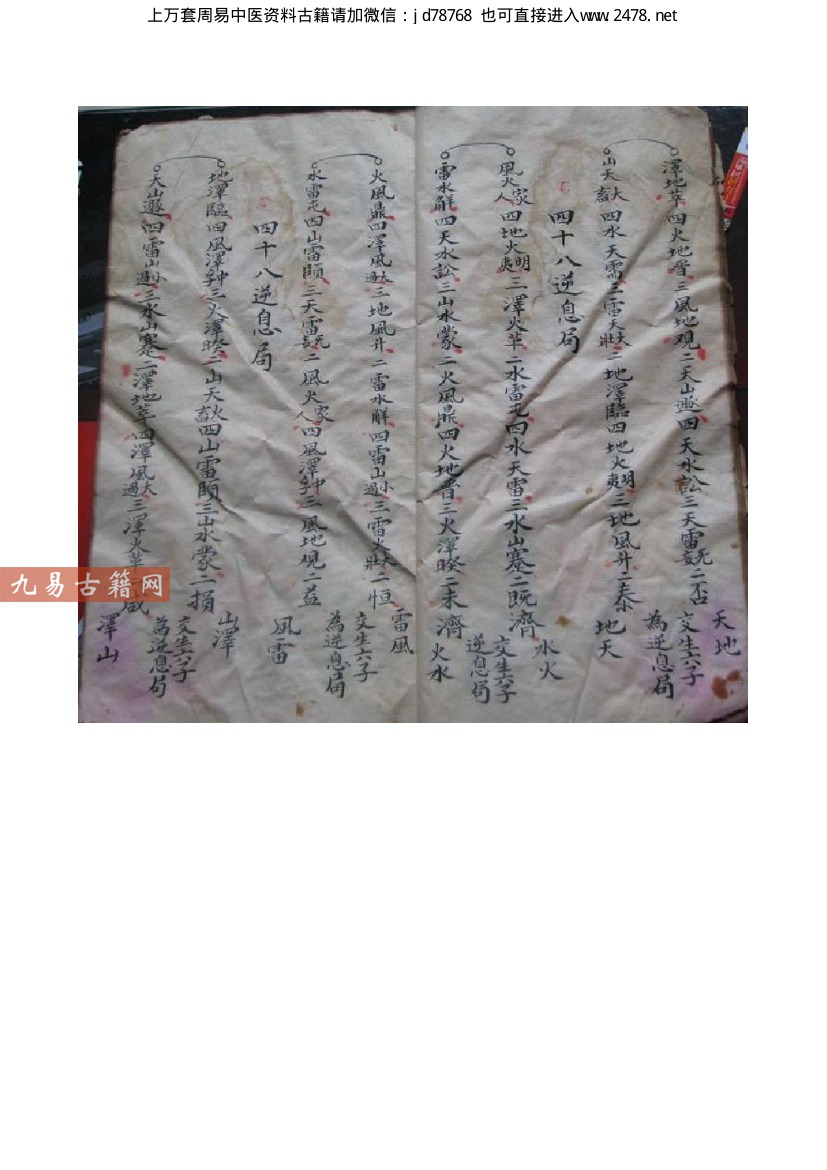 上万套周易中医资料古籍请加微信：jd78768 也可直接进入www.2478.net
澤地萃四火地晉三風地观二天山遯四天水訟三天雷无妄二否
天地
交生六子
為逆息局
山天大畜四水天需三雷天大壯二地澤臨四地火明夷三地風升二泰
地天
四十八逆息局
風火家人四地火明夷三澤火革二水雷屯四水天需三水山蹇二既濟
水火
交生六子
逆息局
雷水解四天水訟三山水蒙二火風鼎四火地晋三火澤睽二未濟
火水
火風鼎四澤風大過三地風升二雷水解四雷山小過三雷天大壯二恒
雷風
交生六子
為逆息局
水雷屯四山雷頤三天雷无妄二風火家人四風澤中孚三風地观二益
風雷
四十八逆息局
地澤臨四風澤中孚三火澤睽二山天大畜四山雷頤三山水蒙二損
山澤
交生六子
為逆息局
天山遯四雷山小過三水山蹇二澤地萃四澤風大過三澤火革二咸
澤山
九易古籍网